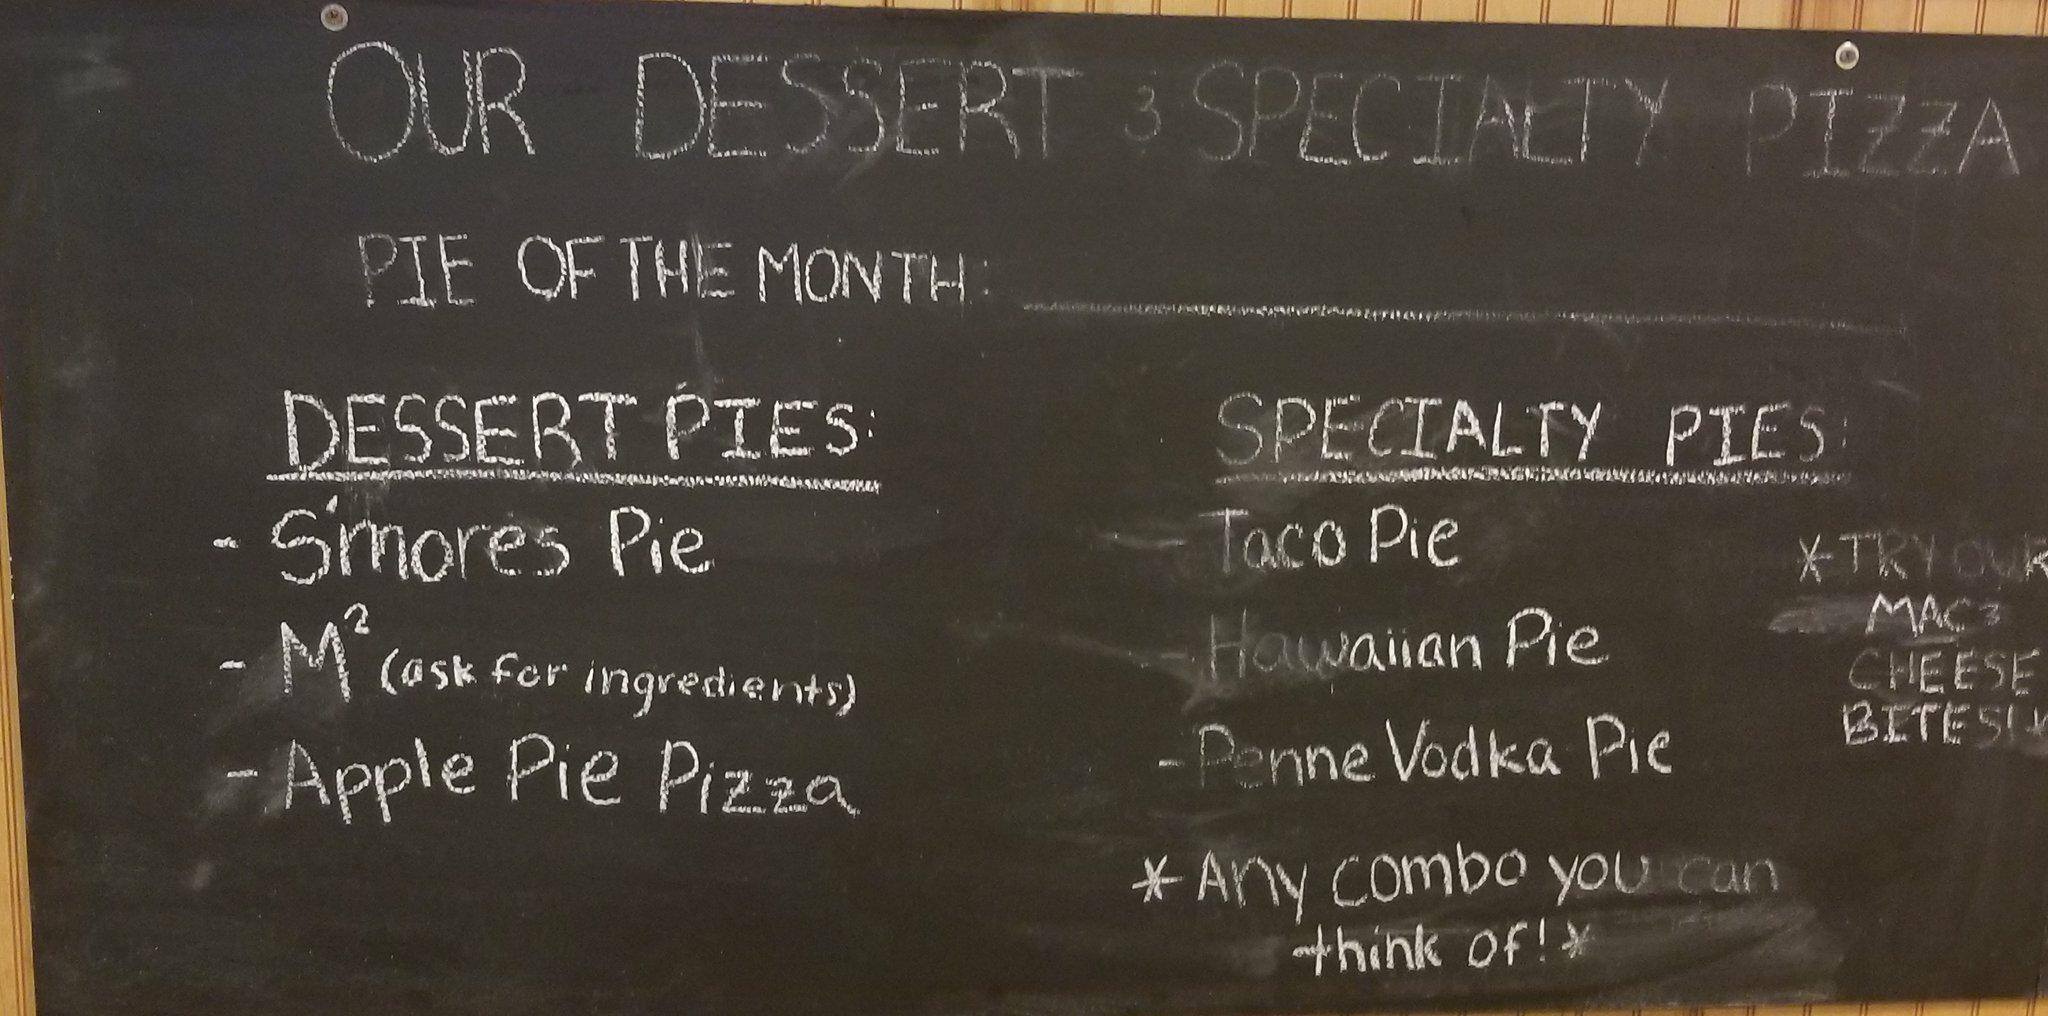 OUR DESSERT & SPECIALTY PIZZA
PIE OF THE MONTH:
DESSERT PIES:
- S'mores Pie
- M² (ask for ingredients)
- Apple Pie Pizza
SPECIALTY PIES:
- Taco Pie
- Hawaiian Pie
- Penne Vodka Pie
* Any combo you can
think of! *
* TRY OUR
MAC &
CHEESE
BITES! *